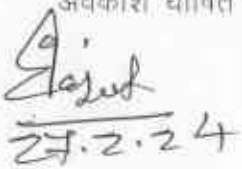 अवकाश घोषित
27.2.24